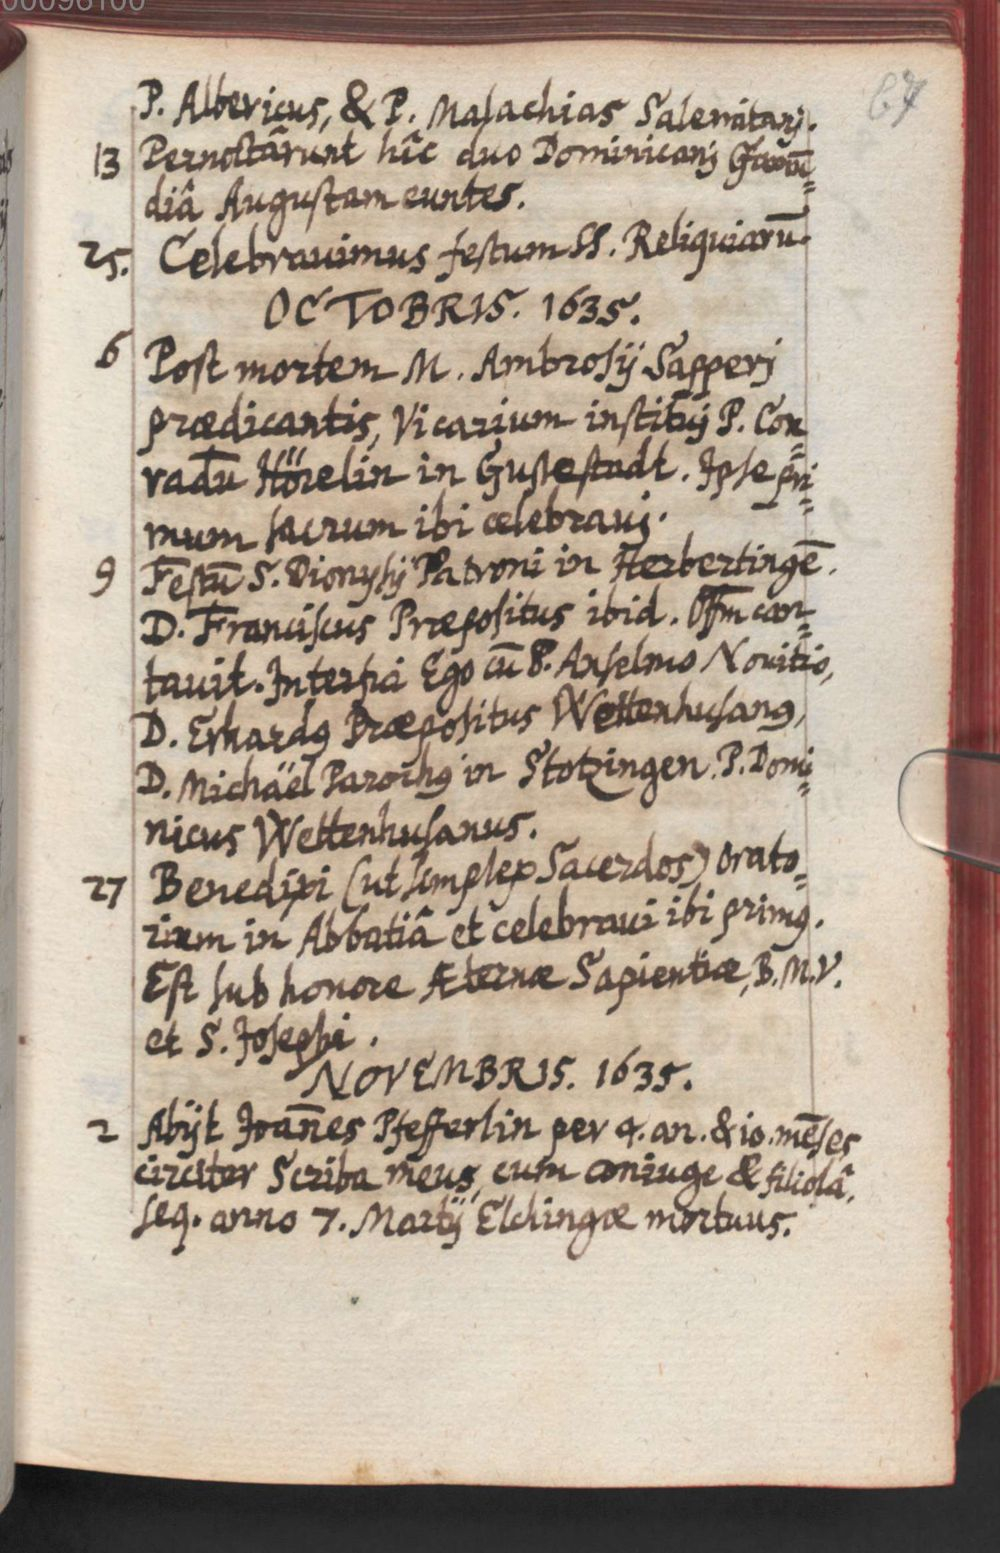 00096100
67
P. Albericus, & P. Malachias Salemitanj.
13 Pernoctârunt hîc duo Dominicanj
diâ Augustam euntes.
25. Celebrauimus festum SS. Reliquiarū.
OCTOBRIS. 1635.
6 Post mortem M. Ambrosij Sapperj
prædicantis, Vicarium institui P. Con=
radū Hörelin in Gustestadt. Ipse pri=
mum sacrum ibi celebrauj.
9 Festū S. Dionysij Patroni in Herbertingē.
D. Franciscus Præpositus ibid. Offm can=
tauit. Interfui Ego cū P. Anselmo Nouitio,
D. Erhardꝰ Præpositus Wettenhusanꝰ,
D. Michaël Parochꝰ in Stotzingen. P. Domi=
nicus Wettenhusanus.
27 Benedixi (ut simplex Sacerdos) orato=
rium in Abbatiâ et celebraui ibi primꝰ.
Est sub honore Æternæ Sapientiæ, B. M. V.
et S. Josephi.
NOVEMBRIS. 1635.
2 Abijt Joañes Pfefferlin per 4. an. & io. mēses
circiter Scriba meus, cum coniuge & filiolâ.
seq. anno 7. Martij Elchingæ mortuus.